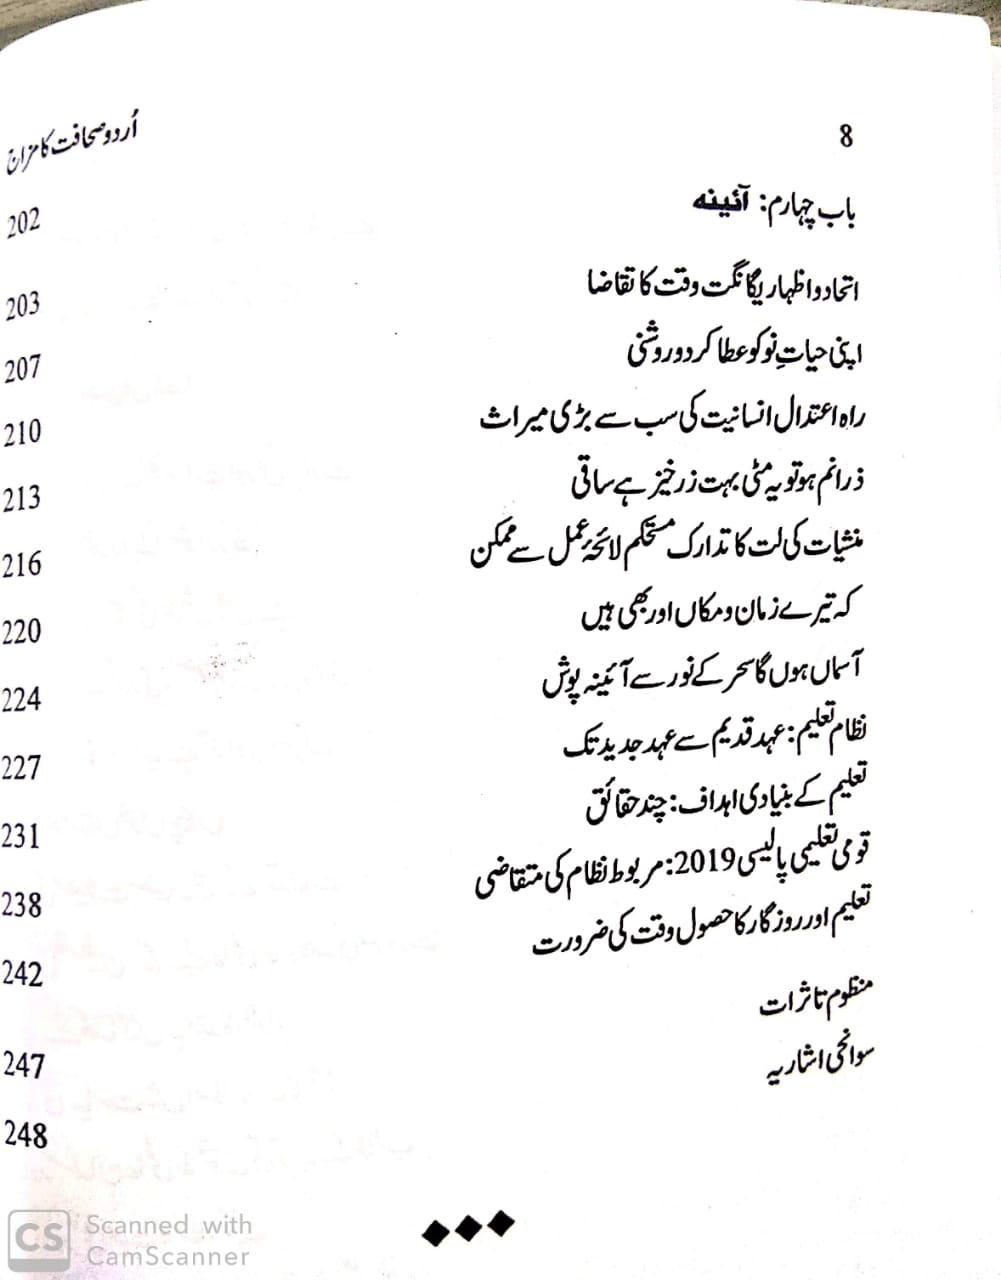 8 اُردو صحافت کا مزاج
باب چہارم: آئینہ 202
اتحاد و اظہار یگانگت وقت کا تقاضا 203
اپنی حیاتِ نو کو عطا کر دو روشنی 207
راہ اعتدال انسانیت کی سب سے بڑی میراث 210
ذرا نم ہو تو یہ مٹی بہت زرخیز ہے ساقی 213
منشیات کی لت کا تدارک مستحکم لائحۂ عمل سے ممکن 216
کہ تیرے زمان و مکاں اور بھی ہیں 220
آسماں ہوں گا سحر کے نور سے آئینہ پوش 224
نظام تعلیم: عہد قدیم سے عہد جدید تک 227
تعلیم کے بنیادی اہداف: چند حقائق 231
قومی تعلیمی پالیسی 2019: مربوط نظام کی متقاضی 238
تعلیم اور روزگار کا حصول وقت کی ضرورت 242
منظوم تاثرات 247
سوانحی اشاریہ 248
CS Scanned with
CamScanner